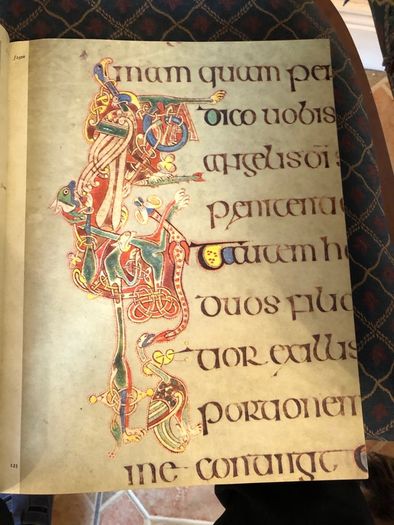 unam quam per
dico uobis
angelis di
penitentia
autem h
duos filio
tior exillis
portionem
me contingit e
123